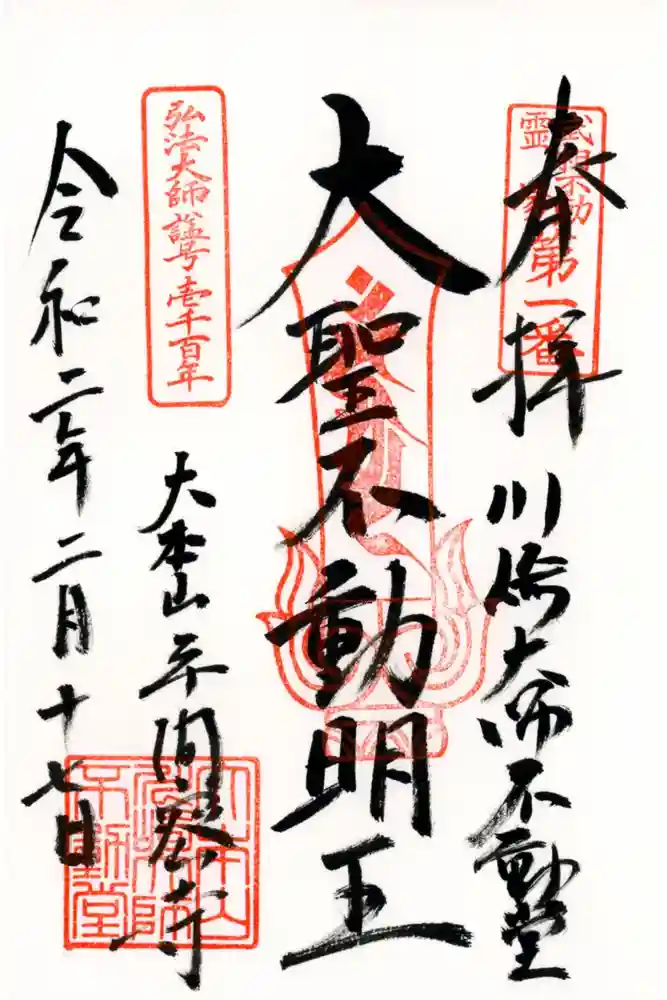 奉拝
川崎大師不動堂
武相不動
霊場第一番
大聖不動明王
弘法大師諡号壱千百年
大本山平間寺
令和二年二月十七日
大本山
川崎大師
不動堂